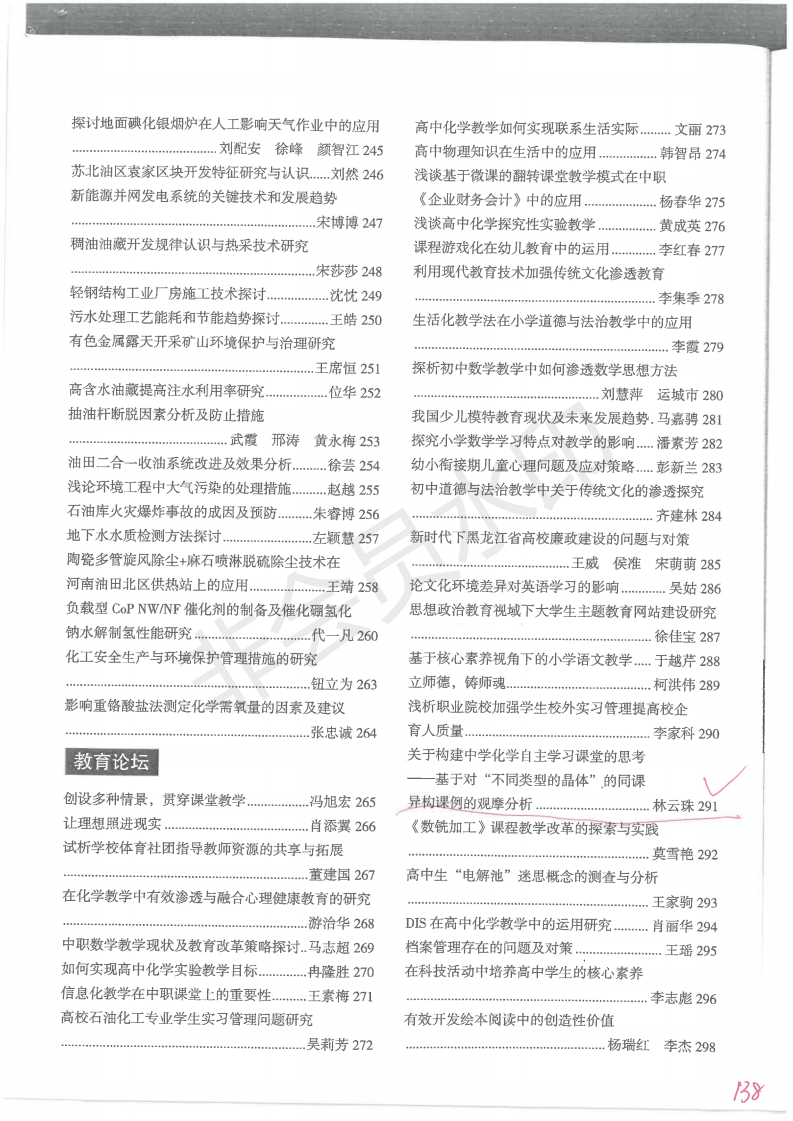 探讨地面碘化银烟炉在人工影响天气作业中的应用
................................ 刘配安 徐峰 颜智江 245
苏北油区袁家区块开发特征研究与认识......刘然 246
新能源并网发电系统的关键技术和发展趋势
................................................................宋博博 247
稠油油藏开发规律认识与热采技术研究
................................................................宋莎莎 248
轻钢结构工业厂房施工技术探讨..............沈忱 249
污水处理工艺能耗和节能趋势探讨............王皓 250
有色金属露天开采矿山环境保护与治理研究
................................................................王席恒 251
高含水油藏提高注水利用率研究..............位华 252
抽油杆断脱因素分析及防止措施
........................................武霞 邢涛 黄永梅 253
油田二合一收油系统改进及效果分析.........徐芸 254
浅论环境工程中大气污染的处理措施.........赵越 255
石油库火灾爆炸事故的成因及预防.........朱睿博 256
地下水水质检测方法探讨.....................左颖慧 257
陶瓷多管旋风除尘+麻石喷淋脱硫除尘技术在
河南油田北区供热站上的应用....................王靖 258
负载型 CoP NW/NF 催化剂的制备及催化硼氢化
钠水解制氢性能研究..............................代一凡 260
化工安全生产与环境保护管理措施的研究
................................................................钮立为 263
影响重铬酸盐法测定化学需氧量的因素及建议
................................................................张忠诚 264
教育论坛
创设多种情景，贯穿课堂教学.................冯旭宏 265
让理想照进现实......................................肖添翼 266
试析学校体育社团指导教师资源的共享与拓展
................................................................董建国 267
在化学教学中有效渗透与融合心理健康教育的研究
................................................................游治华 268
中职数学教学现状及教育改革策略探讨..马志超 269
如何实现高中化学实验教学目标.............冉隆胜 270
信息化教学在中职课堂上的重要性..........王素梅 271
高校石油化工专业学生实习管理问题研究
................................................................吴莉芳 272
高中化学教学如何实现联系生活实际......... 文丽 273
高中物理知识在生活中的应用................. 韩智昂 274
浅谈基于微课的翻转课堂教学模式在中职
《企业财务会计》中的应用..................... 杨春华 275
浅谈高中化学探究性实验教学................. 黄成英 276
课程游戏化在幼儿教育中的运用.............. 李红春 277
利用现代教育技术加强传统文化渗透教育
................................................................ 李集季 278
生活化教学法在小学道德与法治教学中的应用
................................................................ 李霞 279
探析初中数学教学中如何渗透数学思想方法
................................................ 刘慧萍 运城市 280
我国少儿模特教育现状及未来发展趋势. 马嘉骋 281
探究小学数学学习特点对教学的影响..... 潘素芳 282
幼小衔接期儿童心理问题及应对策略..... 彭新兰 283
初中道德与法治教学中关于传统文化的渗透探究
................................................................ 齐建林 284
新时代下黑龙江省高校廉政建设的问题与对策
........................................王威 侯准 宋萌萌 285
论文化环境差异对英语学习的影响............ 吴姑 286
思想政治教育视域下大学生主题教育网站建设研究
................................................................ 徐佳宝 287
基于核心素养视角下的小学语文教学..... 于越芹 288
立师德，铸师魂..................................... 柯洪伟 289
浅析职业院校加强学生校外实习管理提高校企
育人质量............................................... 李家科 290
关于构建中学化学自主学习课堂的思考
——基于对“不同类型的晶体”的同课
异构课例的观摩分析............................ 林云珠 291
《数铣加工》课程教学改革的探索与实践
................................................................ 莫雪艳 292
高中生“电解池”迷思概念的测查与分析
................................................................ 王家驹 293
DIS 在高中化学教学中的运用研究......... 肖丽华 294
档案管理存在的问题及对策...................... 王瑶 295
在科技活动中培养高中学生的核心素养
................................................................ 李志彪 296
有效开发绘本阅读中的创造性价值
.................................................. 杨瑞红 李杰 298
非会员水印
138